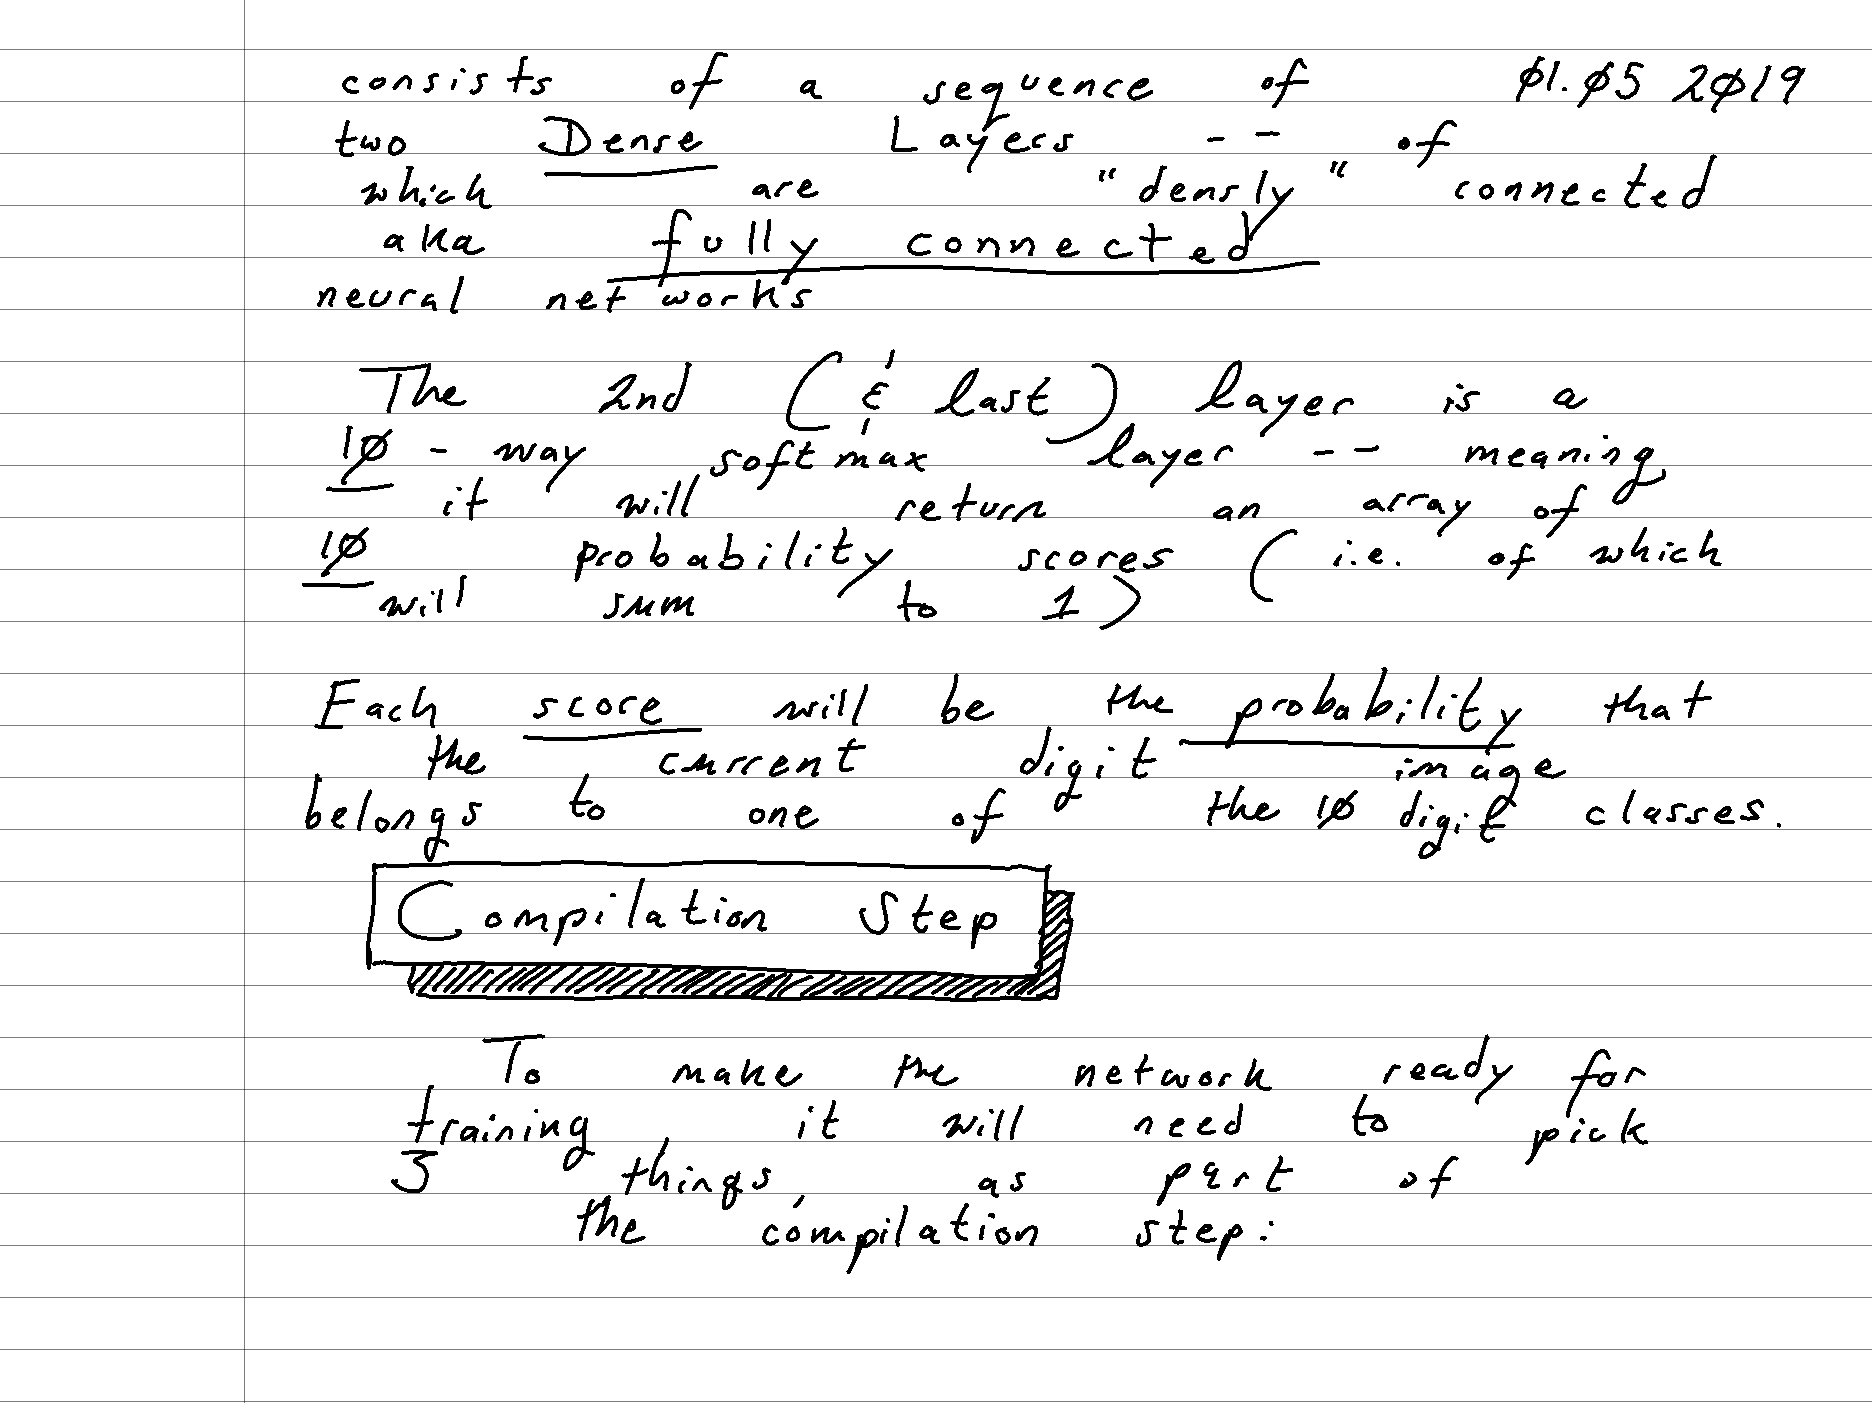 consists of a sequence of 01.05 2019
two Dense Layers -- of
which are "densly" connected
aka fully connected
neural networks
The 2nd (& last) layer is a
10-way softmax layer -- meaning
it will return an array of
10 probability scores (i.e. of which
will sum to 1)
Each score will be the probability that
the current digit image
belongs to one of the 10 digit classes.
Compilation Step
To make the network ready for
training, it will need to pick
3 things, as part of
the compilation step: